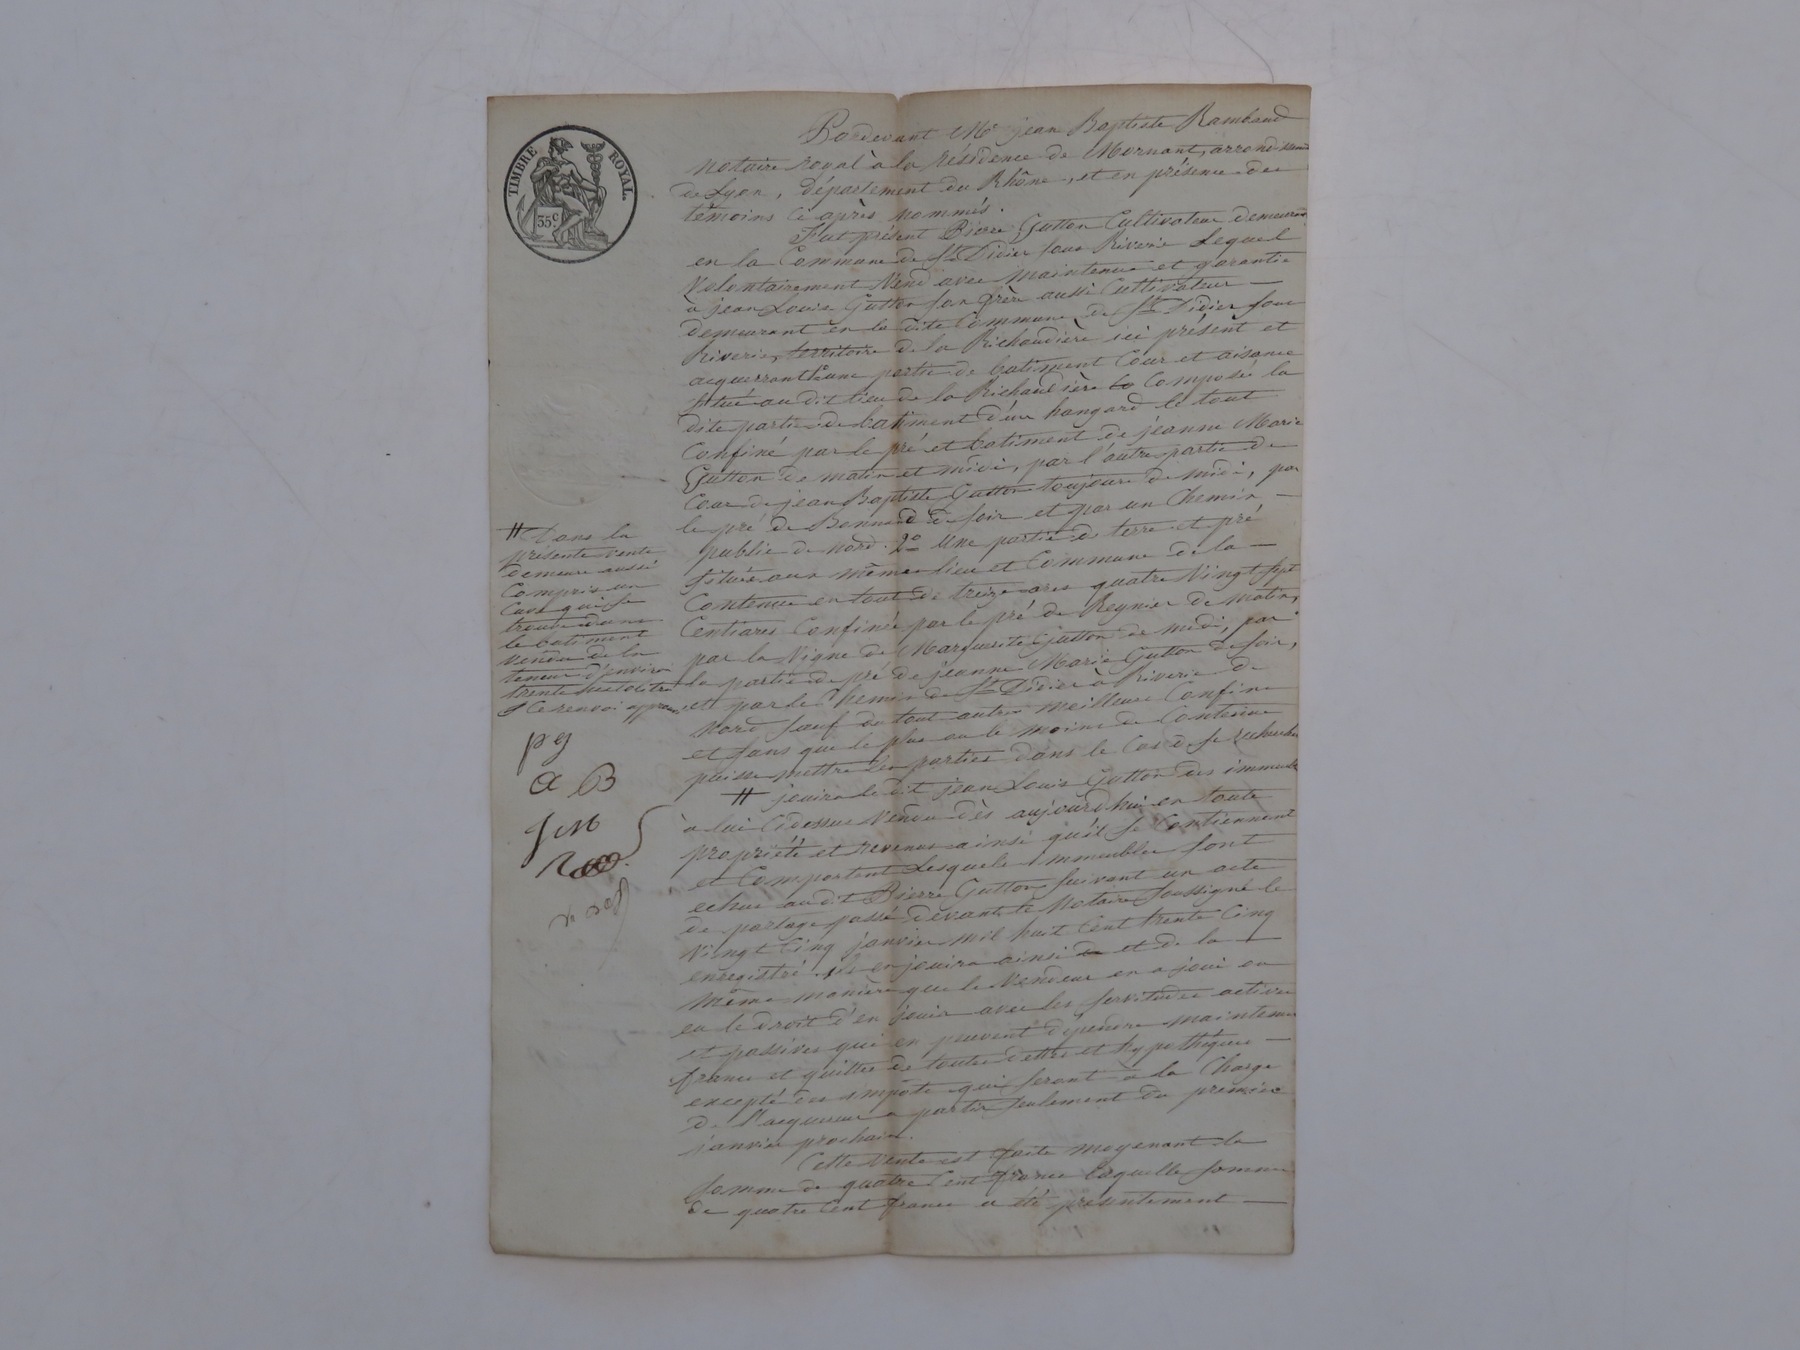 TIMBRE ROYAL.
35c
Pardevant Me jean Baptiste Rambaud
notaire royal à la résidence de Mornant, arrondissement
de Lyon, département du Rhône, et en présence des
témoins ci après nommés.
Fut présent Pierre Gutton Cultivateur demeurant
en la Commune de St Didier sous Riverie Lequel
Volontairement Vend avec maintenue et garantie
à jean Louis Gutton son frère aussi Cultivateur
demeurant en la dite Commune de St Didier sous
Riverie, territoire de la Richaudière ici présent et
acquerrant 1o une partie de batiment Cour et aisance
situé au dit lieu de la Richaudière Composé la
dite partie de batiment d'un hangard le tout
Confiné par le pré et batiment de jeanne Marie
Gutton de matin et midi, par l'autre partie de
Cour de jean Baptiste Gutton toujours de midi, par
le pré de Bonnard de soir et par un Chemin
public de nord. 2o Une partie de terre et pré
située aux mêmes lieu et Commune de la
Contenue en tout de treize ares quatre Vingt sept
Centiares Confinée par le pré de Reynier de matin,
par la Vigne de Marguerite Gutton de midi, par
la partie de pré de jeanne Marie Gutton de soir,
et par le Chemin de St Didier à Riverie de
nord sauf de tout autres meilleurs Confins
et sans que le plus ou le moins de Contenue
puisse mettre les parties dans le Cas de se rechercher
# jouira le dit jean Louis Gutton des immeubles
à lui Cidessus Vendu dès aujourdhui en toute
propriété et revenus ainsi qu'ils se Contiennent
et Comportent Lesquels immeubles sont
echus audit Pierre Gutton suivant un acte
de partage passé devant le Notaire soussigné le
Vingt Cinq janvier mil huit Cent trente Cinq
enregistré. il en jouira ainsi et de la
même manière que le Vendeur en a joui ou
eu le droit d'en jouir avec les servitudes actives
et passives qui en peuvent dépendre maintenus
francs et quittes de toutes dettes et hypothèques
excepté des impôts qui seront à la Charge
de l'acquereur a partir seulement du premier
janvier prochain.
Cette Vente est faite moyenant la
somme de quatre Cent francs Laquelle somme
de quatre Cent francs a été présentement
# Dans la
présente vente
demeure aussi
Compris un
Cuve qui se
trouve dans
le batiment
Vendu de la
teneur d'environ
trente hectolitres
Ce renvoi approuvé
p g
a B